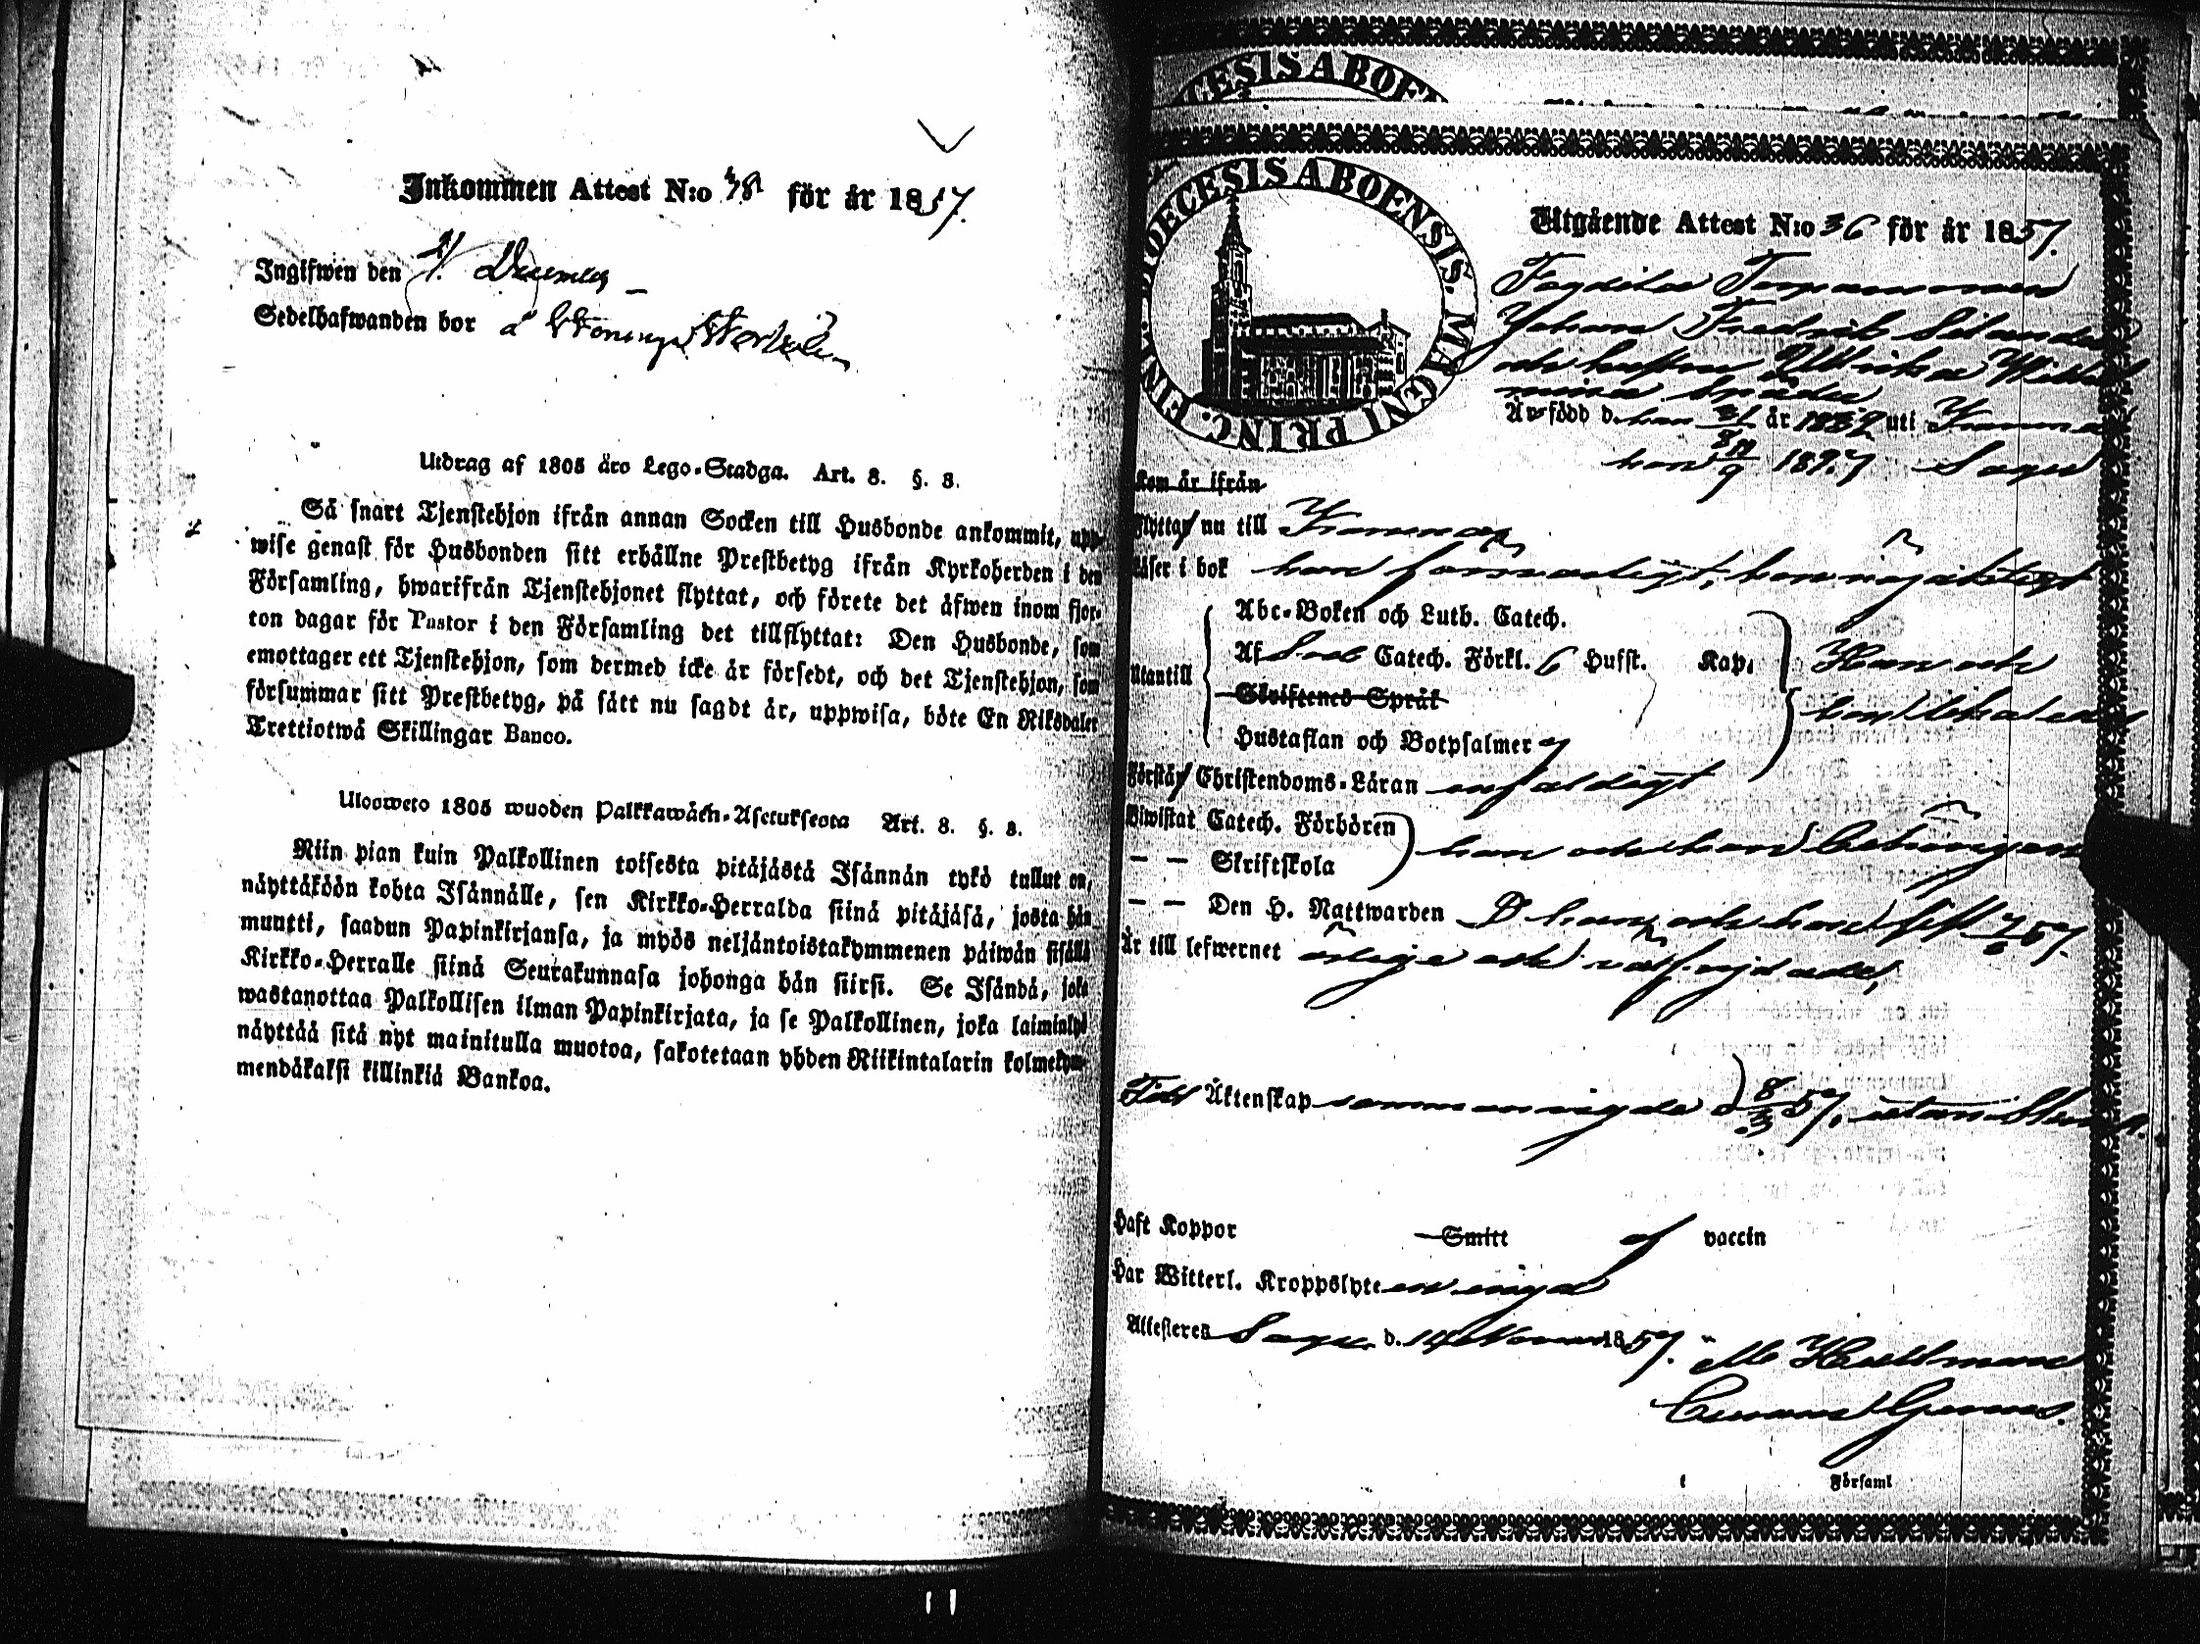 Inkommen Attest N:o 78 för år 1857.
Ingifwen den 4/ December
Sedelhafwanden bor å
Utdrag af 1805 års Lego-Stadga. Art. 8. §. 3.
Så snart Tjenstehjon ifrån annan Socken till Husbonde ankommit, upp-
wise genast för Husbonden sitt erhållne Prestbetyg ifrån Kyrkoherden i den
Församling, hwarifrån Tjenstehjonet flyttat, och förete det äfwen inom fjor-
ton dagar för Pastor i den Församling det tillflyttat: Den Husbonde, som
emottager ett Tjenstehjon, som dermed icke är försedt, och det Tjenstehjon, som
försummar sitt Prestbetyg, på sätt nu sagdt är, uppwisa, böte En Riksdaler
Trettiotwå Skillingar Banco.
Uloosweto 1805 wuoden Palkkawäen-Asetuksesta Art. 8. §. 3.
Niin pian kuin Palkollinen toisesta pitäjästä Isännän tykö tullut on,
näyttäköön kohta Isännälle, sen Kirkko-Herralda siinä pitäjäsä, josta hän
muutti, saadun Papinkirjansa, ja myös neljäntoistakymmenen päiwän sisällä
Kirkko-Herralle siinä Seurakunnasa johonga hän siirsi. Se Isändä, joka
wastanottaa Palkollisen ilman Papinkirjata, ja se Palkollinen, joka laiminlyö
näyttää sitä nyt mainitulla muotoa, sakotetaan yhden Riikintalarin kolmekym-
mendäkaksi killinkiä Bankoa.
CESIS ABOEN
DIOECESIS ABOENSIS. MAGNI PRINC. FINL.
Utgående Attest N:o 36 för år 1857.
Torparen
Johan Fredrik Silander
och hustru Ulrika Wilhel
mina
Är född d. han år 1832 uti Kimito
hon 9 1827 Sagu
Kom är ifrån
Flyttar nu till Kimito
Läser i bok han försvarligt, hon någorlunda
Abc-Boken och Luth. Catech.
Utantill Af Sveb Catech. Förkl. 6 Hufst. Kap. Han och
Skriftenes Språk hon lika
Hustaflan och Botpsalmer
Förstår Christendoms-Läran enfaldigt
Biwistat Catech. Förhören han och hon behörigen
— — Skriftskola
— — Den H. Nattwarden han och hon 57.
Är till lefwernet ärliga och välfrejdade,
Till Äktenskap sammanvigde d 8/3 57, utan
Haft Koppor Smitt af vaccin
Har Witterl. Kroppslyte
Attesteres Sagu d. 14 Novem 1857.
Församl